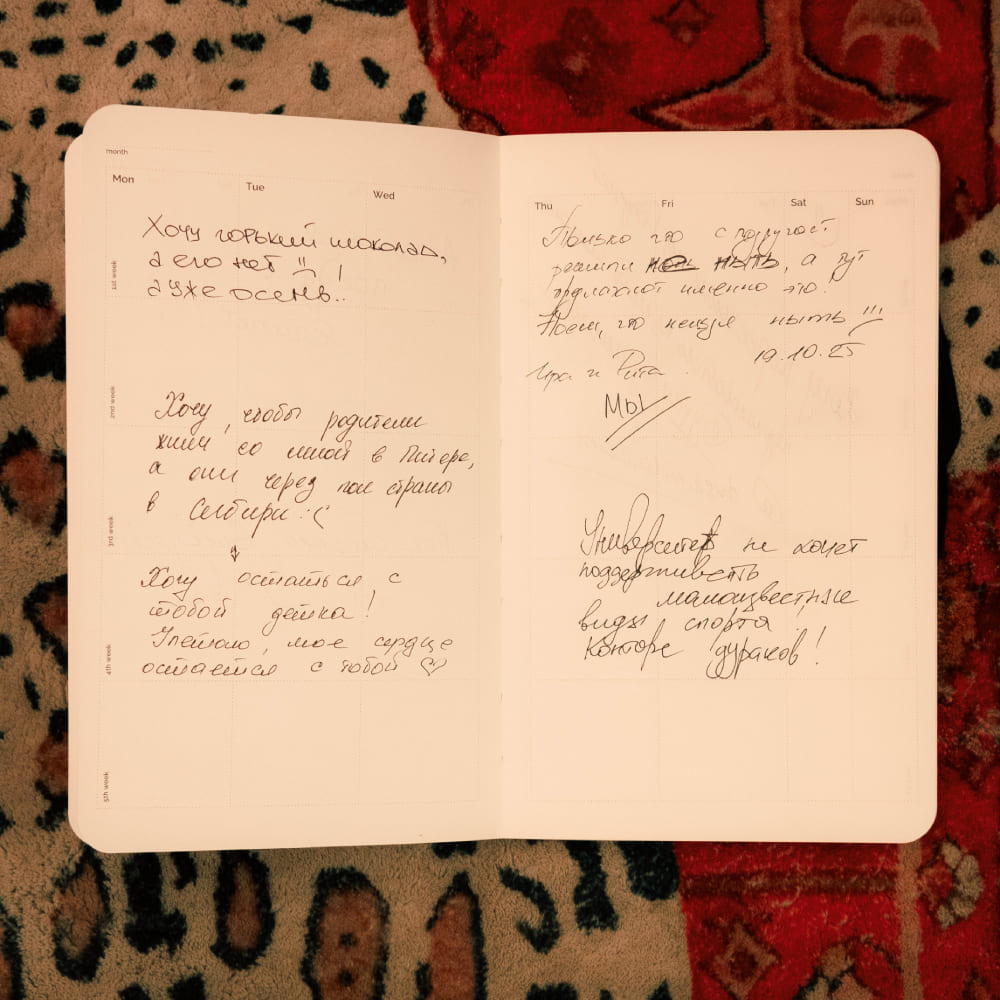 month
Mon
Tue
Wed
1st week
2nd week
3rd week
4th week
5th week
Хочу горький шоколад,
а его нет !!
а уже осень..
Хочу, чтобы родители
жили со мной в Питере,
а они через пол страны
в Сибири :(
Хочу остаться с
тобой детка!
Улетаю, мое сердце
остается с тобой ♡
Thu
Fri
Sat
Sun
Только что с подругой
решили ныть, а тут
предлагают именно это.
Поем, что нельзя ныть !!!
19.10.25
Ира и Рита.
МЫ
Университет не хочет
поддерживать
малоизвестные
виды спорта.
Конторе дураков!